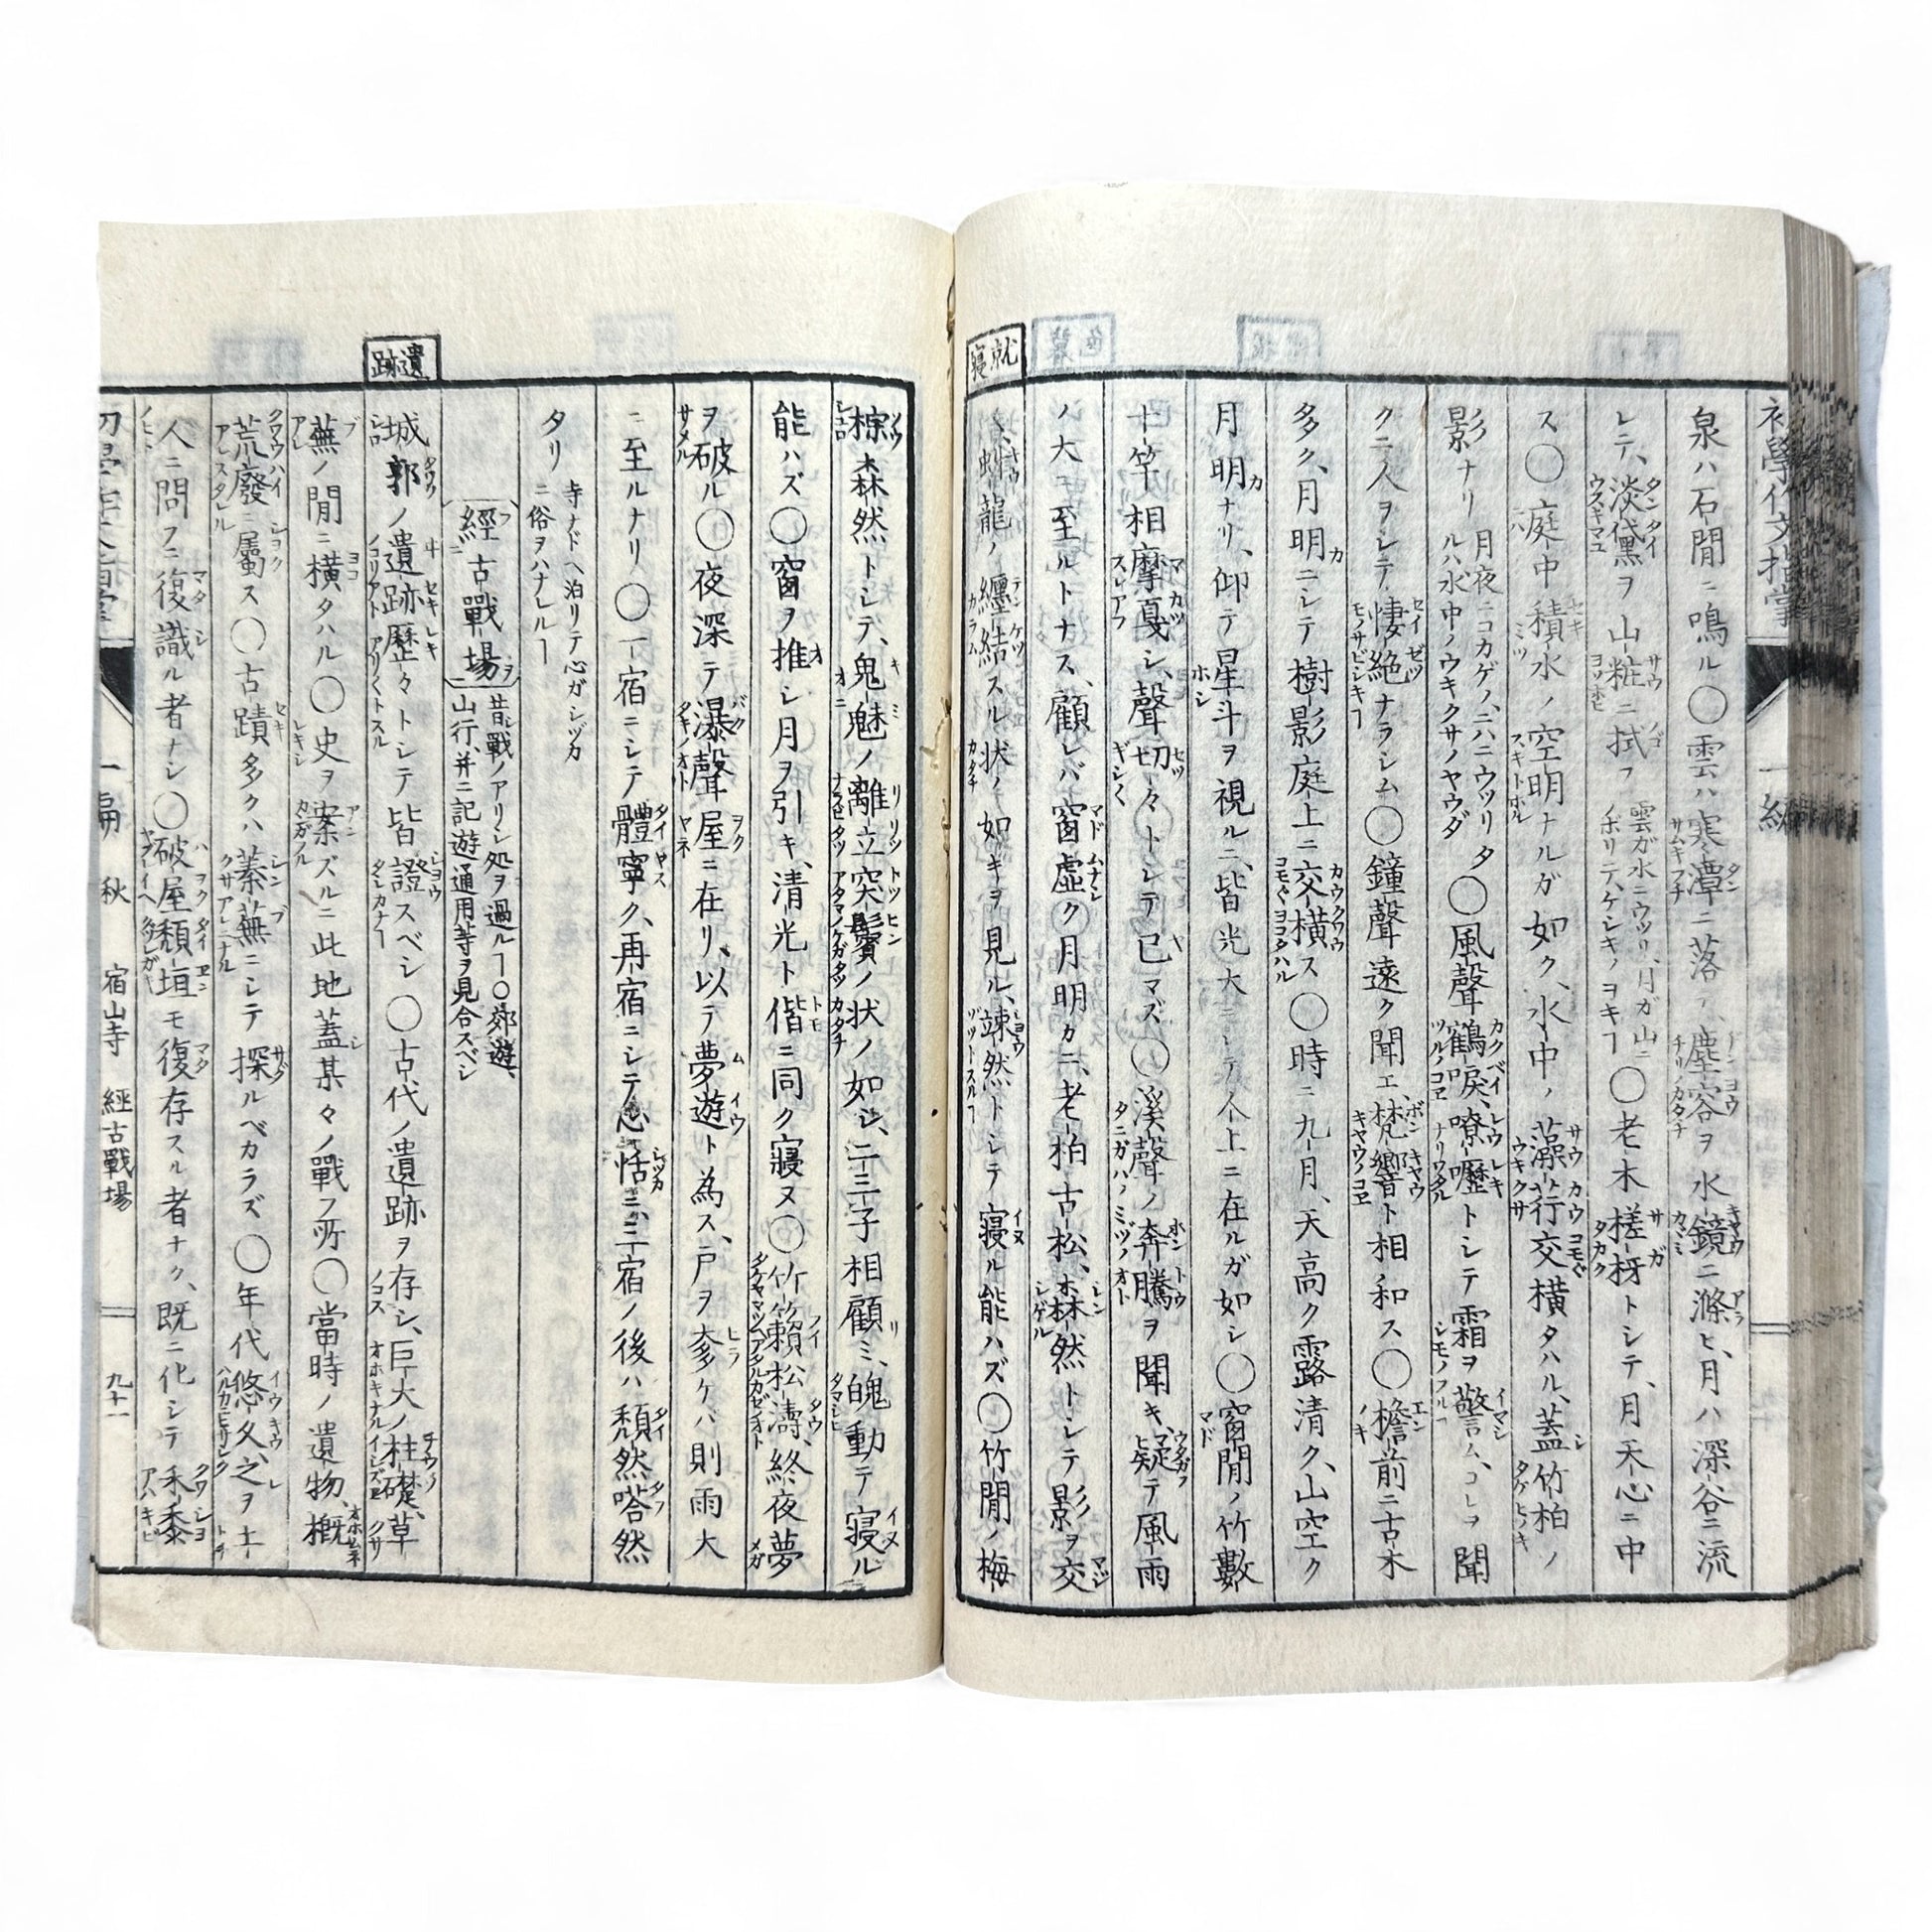 初學作文指掌
一編
泉ハ石間ニ鳴ル〇雲ハ寒潭ニ落テ塵容ヲ水鏡ニ滌ヒ、月ハ深谷ニ流
レテ、淡黛ヲ山粧ニ拭フ 雲ガ水ニウツリ、月ガ山ニノボリテ、ケシキノヨキヿ 〇老木槎枒トシテ、月天心ニ中
ス〇庭中積水ノ空明ナルガ如ク、水中ノ藻荇交横タハル、蓋竹柏ノ
影ナリ 月夜ニコカゲノ、ニハニウツリタルハ水中ノウキクサノヤウダ 〇風聲鶴唳、嘹嚦トシテ霜ヲ警ム、コレヲ聞
クニ人ヲシテ悽絶ナラシム〇鐘聲遠ク聞エ、梵響ト相和ス〇檐前ニ古木
多ク、月明ニシテ樹影庭上ニ交横ス〇時ニ九月、天高ク露清ク、山空ク
月明ナリ、仰テ星斗ヲ視ルニ、皆光大ニシテ人上ニ在ルガ如シ〇窗間ノ竹數
十竿相摩戛シ、聲切々トシテ已マズ〇溪聲ノ奔騰ヲ聞キ、疑テ風雨
ノ大至ルトナス、顧レバ窗虚ク月明カニ、老柏古松、森然トシテ影ヲ交
就寢
蛟龍ノ纏結スル状ノ如キヲ見ル、竦然トシテ寢ル能ハズ〇竹間ノ梅
棕森然トシテ、鬼魅ノ離立突鬢ノ状ノ如シ、二三子相顧ミ、魄動テ寢ル
能ハズ〇窗ヲ推シ月ヲ引キ、清光ト偕ニ同ク寢ヌ〇竹籟松濤、終夜夢
ヲ破ル〇夜深テ瀑聲屋ニ在リ、以テ夢遊ト為ス、戸ヲ夛ケバ則雨大
ニ至ルナリ〇一宿ニシテ體寧ク、再宿ニシテ心恬ニ、三宿ノ後ハ頽然嗒然
タリ 寺ナドヘ泊リテ心ガシヅカニ俗ヲハナルヽヿ
經古戰場 昔シ戰ノアリシ処ヲ過ルヿ〇郊遊、山行、并ニ記遊通用等ヲ見合スベシ
遺跡
城郭ノ遺跡歴々トシテ皆證スベシ〇古代ノ遺跡ヲ存シ、巨大ノ柱礎、草
蕪ノ間ニ横タハル〇史ヲ案ズルニ此地蓋某々ノ戰フ所〇當時ノ遺物、概
荒廢ニ屬ス〇古蹟多クハ蓁蕪ニシテ探ルベカラズ〇年代悠久、之ヲ土
人ニ問フニ復識ル者ナシ〇破屋頽垣モ復存スル者ナク、既ニ化シテ禾黍
一編 秋 宿山寺 經古戰場 九十一